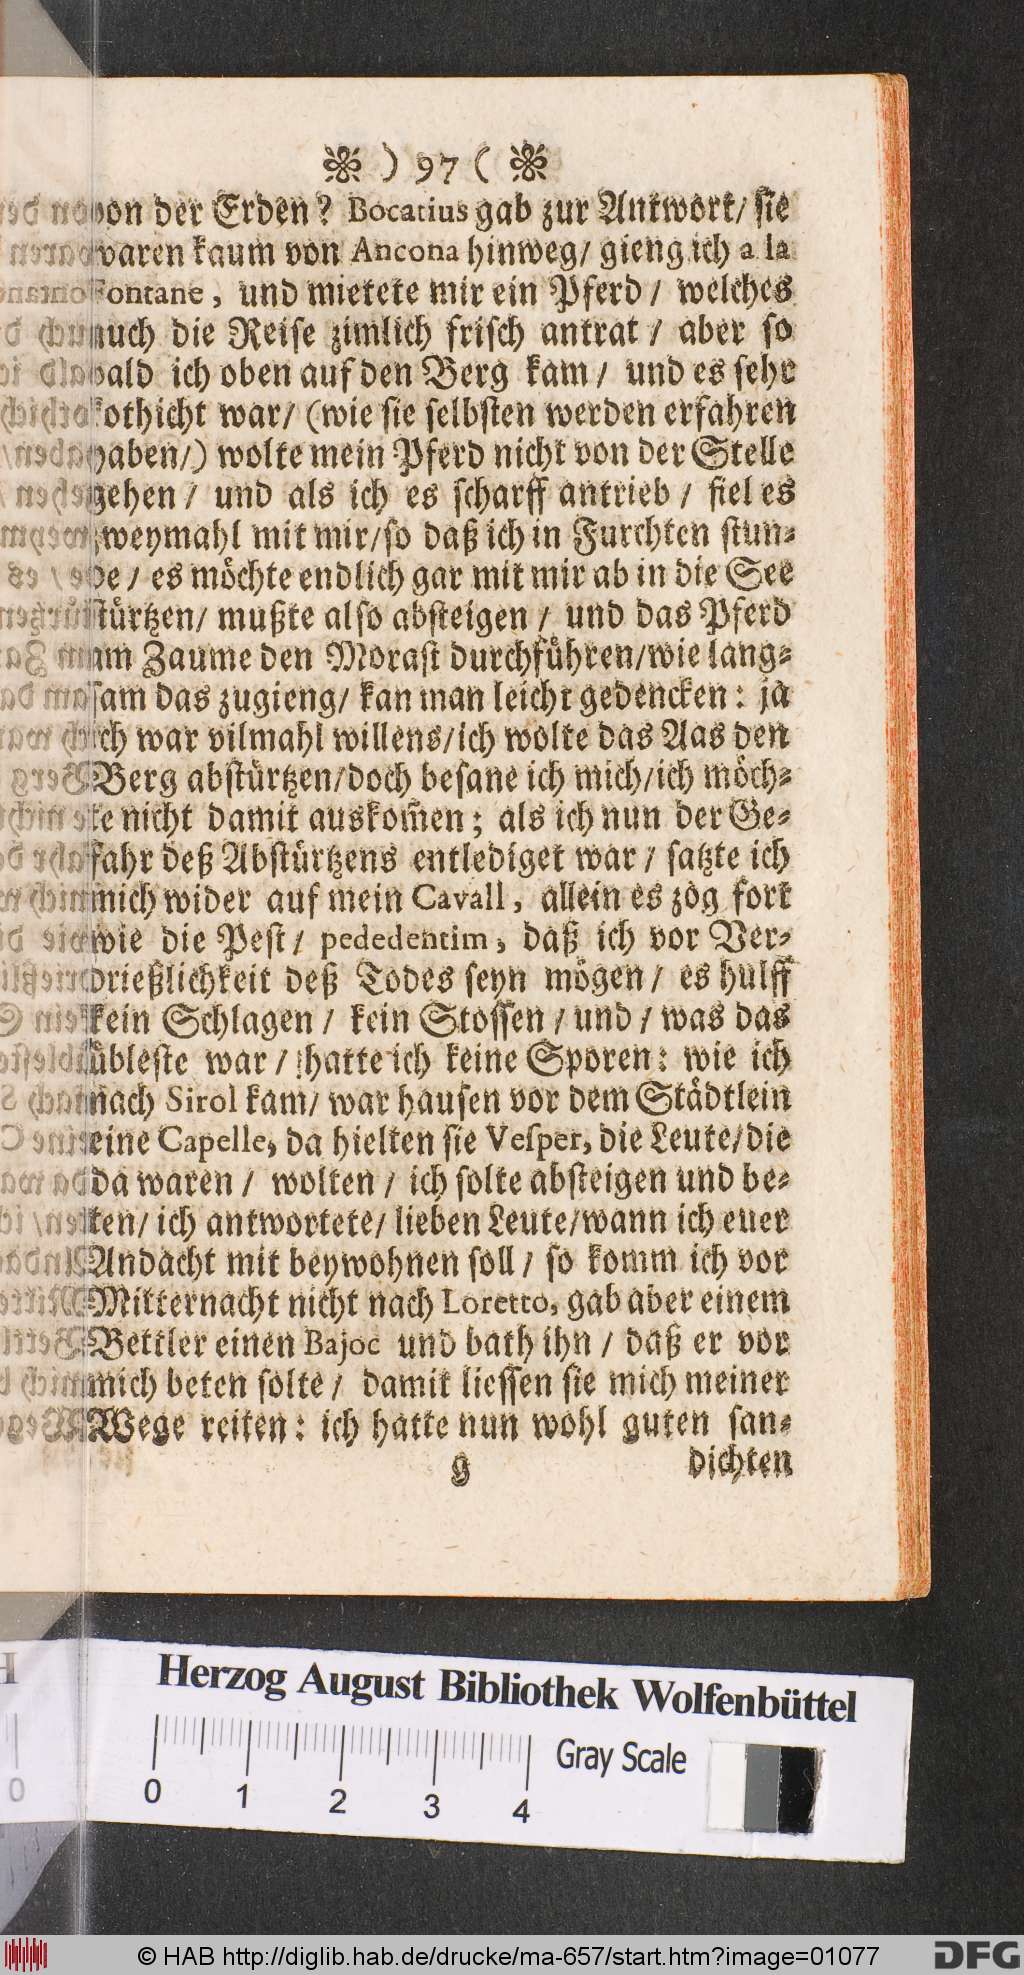 ❀ ) 97 ( ❀
von der Erden? Bocatius gab zur Antwort/ sie
waren kaum von Ancona hinweg/ gieng ich a la
Fontane, und mietete mir ein Pferd/ welches
auch die Reise zimlich frisch antrat/ aber so
bald ich oben auf den Berg kam/ und es sehr
kothicht war/ (wie sie selbsten werden erfahren
haben/) wolte mein Pferd nicht von der Stelle
gehen/ und als ich es scharff antrieb/ fiel es
zweymahl mit mir/so daß ich in Furchten stun-
de/ es möchte endlich gar mit mir ab in die See
stürtzen/ mußte also absteigen/ und das Pferd
am Zaume den Morast durchführen/wie lang-
sam das zugieng/ kan man leicht gedencken: ja
ich war vilmahl willens/ich wolte das Aas den
Berg abstürtzen/doch besane ich mich/ich möch-
te nicht damit auskom̃en; als ich nun der Ge-
fahr deß Abstürtzens entlediget war/ satzte ich
mich wider auf mein Cavall, allein es zog fort
wie die Pest/ pededentim, daß ich vor Ver-
drießlichkeit deß Todes seyn mögen/ es hulff
kein Schlagen/ kein Stossen/ und/ was das
übleste war/ hatte ich keine Sporen: wie ich
nach Sirol kam/ war hausen vor dem Städtlein
eine Capelle, da hielten sie Vesper, die Leute/die
da waren/ wolten/ ich solte absteigen und be-
ten/ ich antwortete/ lieben Leute/wann ich euer
Andacht mit beywohnen soll/ so komm ich vor
Mitternacht nicht nach Loretto, gab aber einem
Bettler einen Bajoc und bath ihn/ daß er vor
mich beten solte/ damit liessen sie mich meiner
Wege reiten: ich hatte nun wohl guten san-
g dichten
Herzog August Bibliothek Wolfenbüttel
0 1 2 3 4 Gray Scale
© HAB http://diglib.hab.de/drucke/ma-657/start.htm?image=01077 DFG